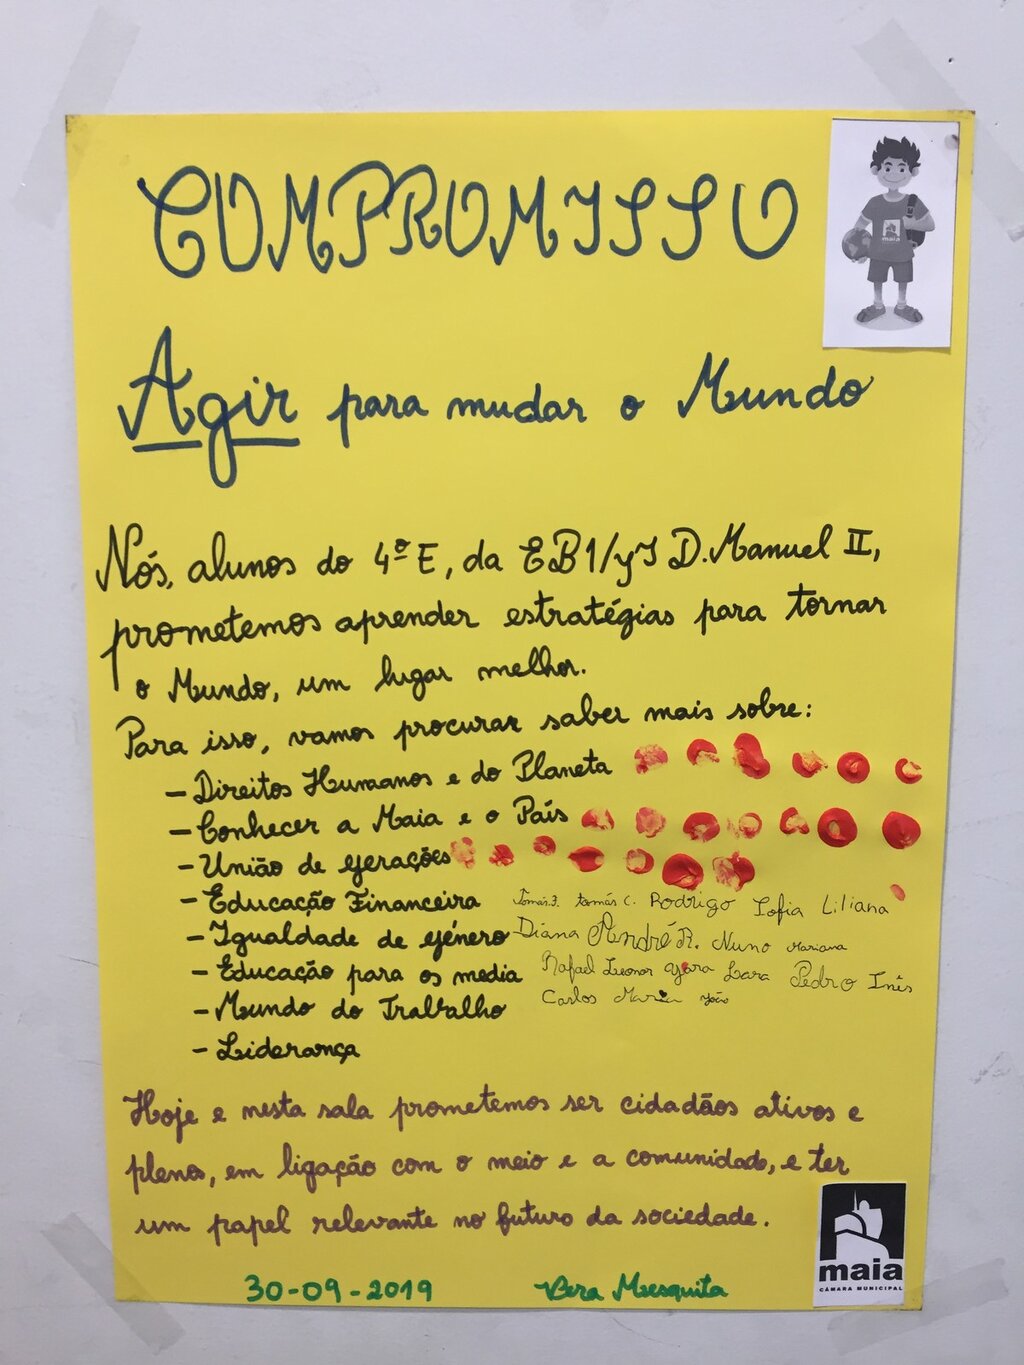 COMPROMISSO
maia
Agir para mudar o Mundo
Nós, alunos do 4º E, da EB1/JI D. Manuel II,
prometemos aprender estratégias para tornar
o Mundo, um lugar melhor.
Para isso, vamos procurar saber mais sobre:
- Direitos Humanos e do Planeta
- Conhecer a Maia e o País
- União de gerações
- Educação Financeira
- Igualdade de género
- Educação para os media
- Mundo do Trabalho
- Liderança
Tomás F. Tomás C. Rodrigo Sofia Liliana
Diana André R. Nuno Mariana
Rafael Leonor Yara Lara Pedro Inês
Carlos Maria João
Hoje e nesta sala prometemos ser cidadãos ativos e
plenos, em ligação com o meio e a comunidade, e ter
um papel relevante no futuro da sociedade.
30-09-2019 Vera Mesquita
maia
CÂMARA MUNICIPAL